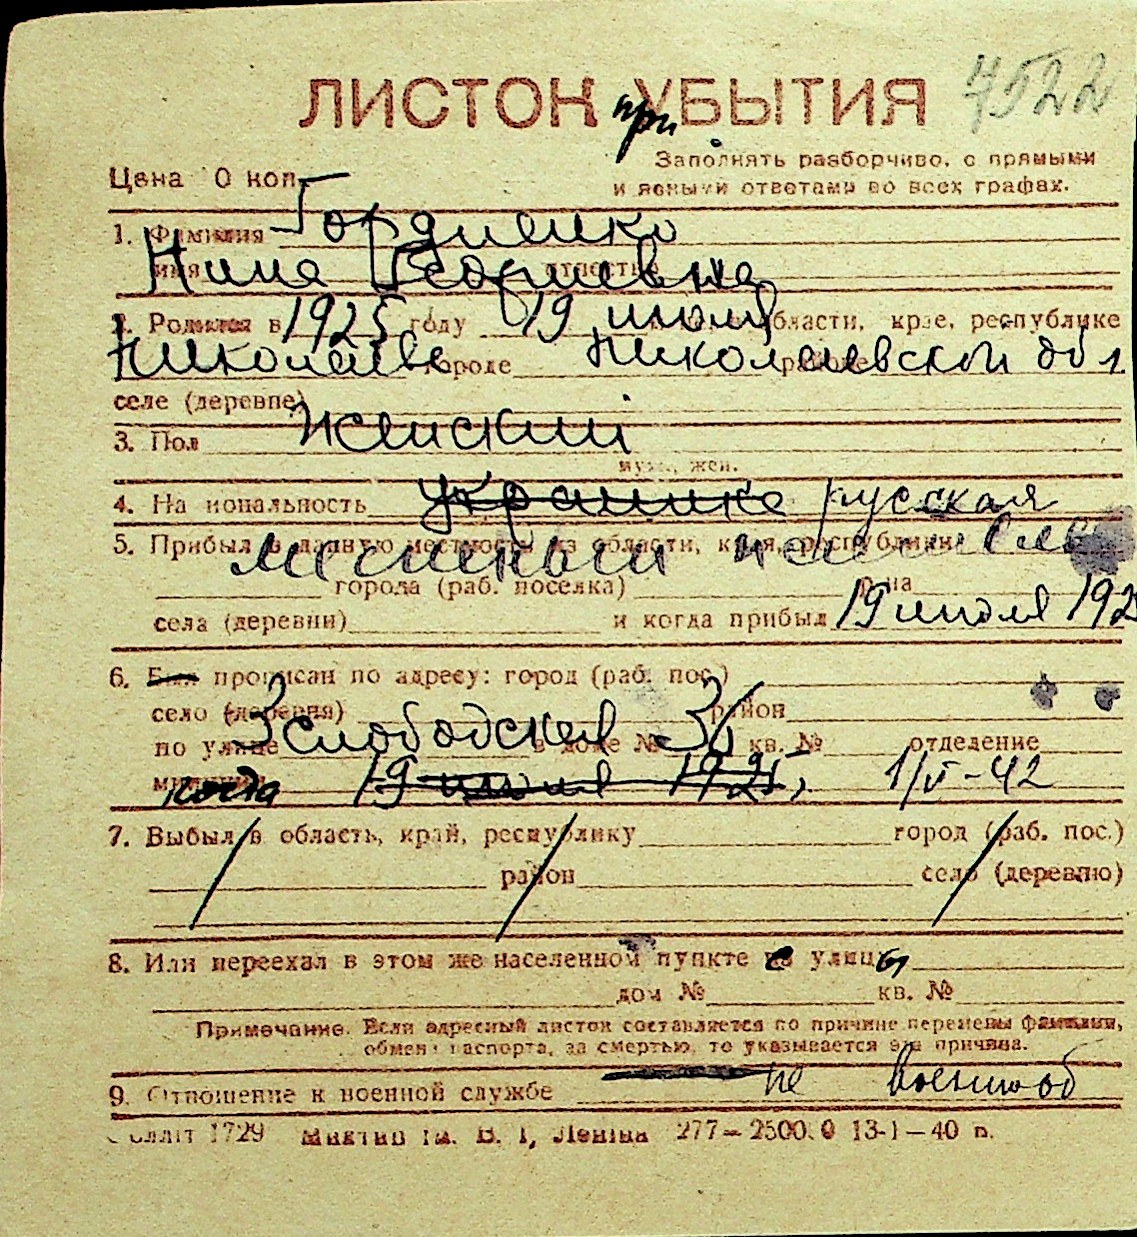 ЛИСТОК УБЫТИЯ при 4522
Заполнять разборчиво, с прямыми
Цена 0 коп. и ясными ответами во всех графах.
1. Фамилия Гордиенко
имя Нина Георгиевна отчество
2. Родился в 1925 году 19 июля области, крае, республике
Николаев городе Николаевской районе обл
селе (деревне)
3. Пол женский
муж., жен.
4. Национальность украинка русская
5. Прибыл в данную местность из области, края, республики местный
города (раб. поселка) р-на
села (деревни) и когда прибыл 19 июля 192
6. Был прописан по адресу: город (раб. пос.)
село (деревня) район
по улице 3 слободская в доме № 36 кв. № отделение
милиции когда 19 июля 1925, 1/V-42
7. Выбыл в область, край, республику город (раб. пос.)
район село (деревню)
8. Или переехал в этом же населенном пункте с улицы
дом № кв. №
Примечание. Если адресный листок составляется по причине перемены фамилии,
обмена паспорта, за смертью, то указывается эта причина.
9. Отношение к военной службе не военнооб
Облліт 1729 ім. В. І. Леніна 277—2500.0 13-І—40 п.